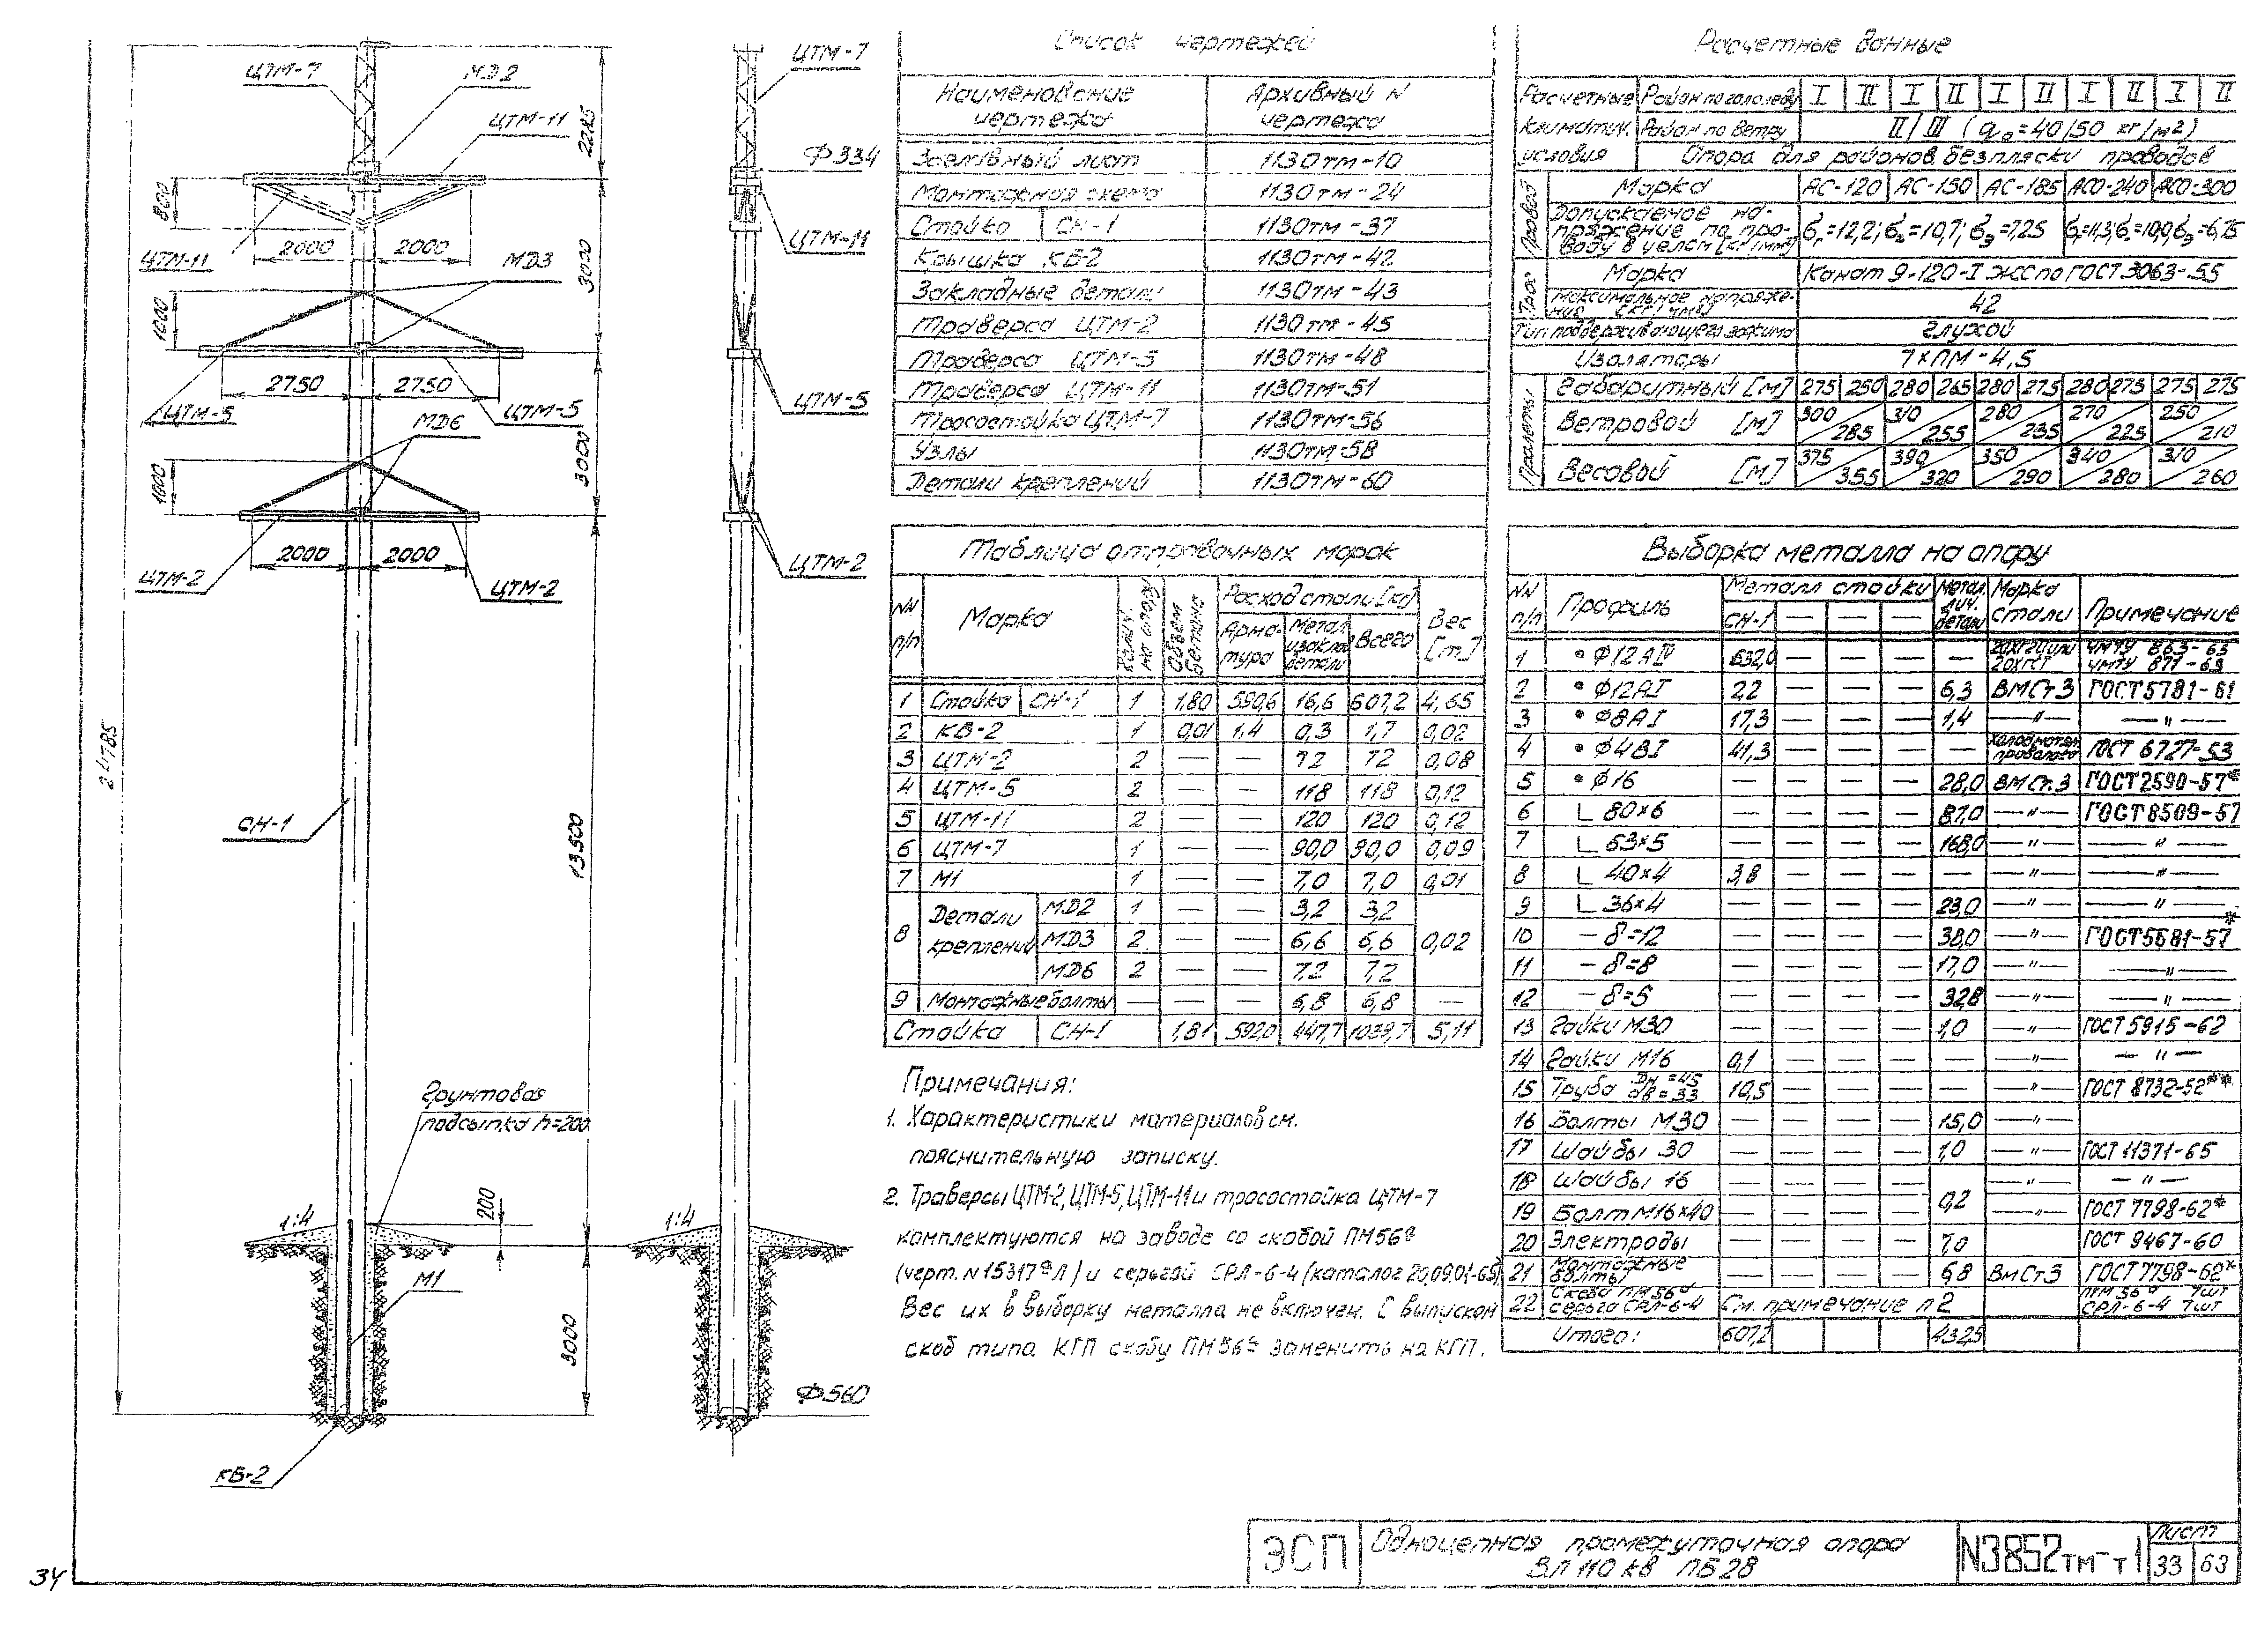 ЦТМ-7
МД2
ЦТМ-11
2285
800
2000
2000
ЦТМ-11
МД3
3000
1000
2750
2750
ЦТМ-5
ЦТМ-5
МД6
3000
1000
2000
2000
ЦТМ-2
ЦТМ-2
24785
СН-1
13500
Грунтовая
подсыпка h=200
1:4
200
М1
3000
КВ-2
34
ЦТМ-7
Ф334
ЦТМ-11
ЦТМ-5
ЦТМ-2
1:4
Ф560
Список чертежей
Наименование чертежа | Архивный N чертежа
Заглавный лист | 1130тм-10
Монтажная схема | 1130тм-24
Стойка | СН-1 | 1130тм-37
Крышка КВ-2 | 1130тм-42
Закладные детали | 1130тм-43
Траверса ЦТМ-2 | 1130тм-45
Траверса ЦТМ-5 | 1130тм-48
Траверса ЦТМ-11 | 1130тм-51
Тросостойка ЦТМ-7 | 1130тм-56
Узлы | 1130тм-58
Детали креплений | 1130тм-60
Таблица отправочных марок
NN п/п | Марка | Колич. на опору | Объем бетона | Расход стали [кг] | Вес [т]
Арматура | Метал. и закл. детали | Всего
1 | Стойка | СН-1 | 1 | 1,80 | 590,6 | 16,6 | 607,2 | 4,65
2 | КВ-2 | 1 | 0,01 | 1,4 | 0,3 | 1,7 | 0,02
3 | ЦТМ-2 | 2 | — | — | 72 | 72 | 0,08
4 | ЦТМ-5 | 2 | — | — | 118 | 118 | 0,12
5 | ЦТМ-11 | 2 | — | — | 120 | 120 | 0,12
6 | ЦТМ-7 | 1 | — | — | 90,0 | 90,0 | 0,09
7 | М1 | 1 | — | — | 7,0 | 7,0 | 0,01
8 | Детали креплений | МД2 | 1 | — | — | 3,2 | 3,2 | 0,02
МД3 | 2 | — | — | 6,6 | 6,6
МД6 | 2 | — | — | 7,2 | 7,2
9 | Монтажные болты | — | — | — | 6,8 | 6,8 | —
Стойка | СН-1 | 1,81 | 592,0 | 447,7 | 1039,7 | 5,11
Примечания:
1. Характеристики материалов см.
пояснительную записку.
2. Траверсы ЦТМ-2, ЦТМ-5, ЦТМ-11 и тросостойка ЦТМ-7
комплектуются на заводе со скобой ПМ56а
(черт. N15317а Л) и серьгой СРЛ-6-4 (каталог 20.09.01-65)
Вес их в выборку металла не включен. С выпуском
скоб типа КГП скобу ПМ56а заменить на КГП.
Расчетные данные
Расчетные климатич. условия | Район по гололеду | I | II | I | II | I | II | I | II | I | II
Район по ветру | II/III (q₀=40/50 кг/м²)
Опора для районов без пляски проводов
Провод | Марка | АС-120 | АС-150 | АС-185 | АСО-240 | АСО-300
Допускаемое напряжение по проводу в целом [кг/мм²]
Трос | Марка | Канат 9-120-I ЖС по ГОСТ 3063-55
Максимальное напряжение [кг/мм²] | 42
Тип поддерживающего зажима | глухой
Изоляторы | 7×ПМ-4,5
Пролеты | Габаритный [м] | 275 | 250 | 280 | 265 | 280 | 275 | 280 | 275 | 275 | 275
Ветровой [м] | 300/285 | 310/255 | 280/235 | 270/225 | 250/210
Весовой [м] | 375/355 | 390/320 | 350/290 | 340/280 | 310/260
Выборка металла на опору
NN п/п | Профиль | Металл стойки | Метал. лич. детали | Марка стали | Примечание
СН-1 | — | — | —
1 | • Ф12АIV | 632,0 | — | — | — | — | 20ХГ2Ц или 20ХГСТ | ЧМТУ 863-63 ЧМТУ 871-63
2 | • Ф12АI | 2,2 | — | — | — | 6,3 | ВМСт3 | ГОСТ 5781-61
3 | • Ф8АI | 17,3 | — | — | — | 1,4 | —"— | —"—
4 | • Ф4ВI | 41,3 | — | — | — | — | ГОСТ 6727-53
5 | • Ф16 | — | — | — | — | 28,0 | ВМСт.3 | ГОСТ 2590-57*
6 | L 80×6 | — | — | — | — | 87,0 | —"— | ГОСТ 8509-57
7 | L 63×5 | — | — | — | — | 168,0 | —"— | —"—
8 | L 40×4 | 3,8 | — | — | — | — | —"— | —"—
9 | L 36×4 | — | — | — | — | 23,0 | —"— | —"—
10 | — δ=12 | — | — | — | — | 38,0 | —"— | ГОСТ 5681-57*
11 | — δ=8 | — | — | — | — | 17,0 | —"— | —"—
12 | — δ=5 | — | — | — | — | 32,8 | —"— | —"—
13 | Гайки М30 | — | — | — | — | 1,0 | —"— | ГОСТ 5915-62
14 | Гайки М16 | 0,1 | — | — | — | —"— | —"—
15 | Труба Dн=45 dв=33 | 10,5 | — | — | — | — | —"— | ГОСТ 8732-52**
16 | Болты М30 | — | — | — | — | 15,0 | —"—
17 | Шайбы 30 | — | — | — | — | 1,0 | —"— | ГОСТ 11371-65
18 | Шайбы 16 | — | — | — | — | 0,2 | —"— | —"—
19 | Болт М16×40 | — | — | — | — | —"— | ГОСТ 7798-62*
20 | Электроды | — | — | — | — | 7,0 | ГОСТ 9467-60
21 | Монтажные болты | — | — | — | — | 6,8 | ВМСт3 | ГОСТ 7798-62*
22 | Скоба ПМ56а серьга СРЛ-6-4 | См. примечание п2 | ПМ56а 7шт СРЛ-6-4 7шт
Итого: | 607,2 | 432,5
ЭСП | Одноцепная промежуточная опора ВЛ 110 кв ПБ28 | N3852тм-т1 | Лист | 33 | 63